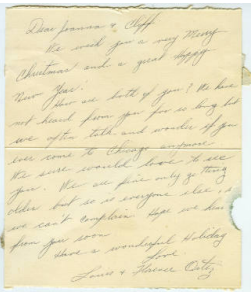 Dear Joanna & Cliff
We wish you a very Merry
Christmas and a great Happy
New Year.
How are both of you? We have
not heard from you for so long but
we often talk and wonder if you
ever come to Chicago anymore.
We sure would love to see
you. We are fine only getting
older but so is everyone else so
we can't complain. Hope we hear
from you soon
Have a wonderful Holiday
Love
Louis & Florence